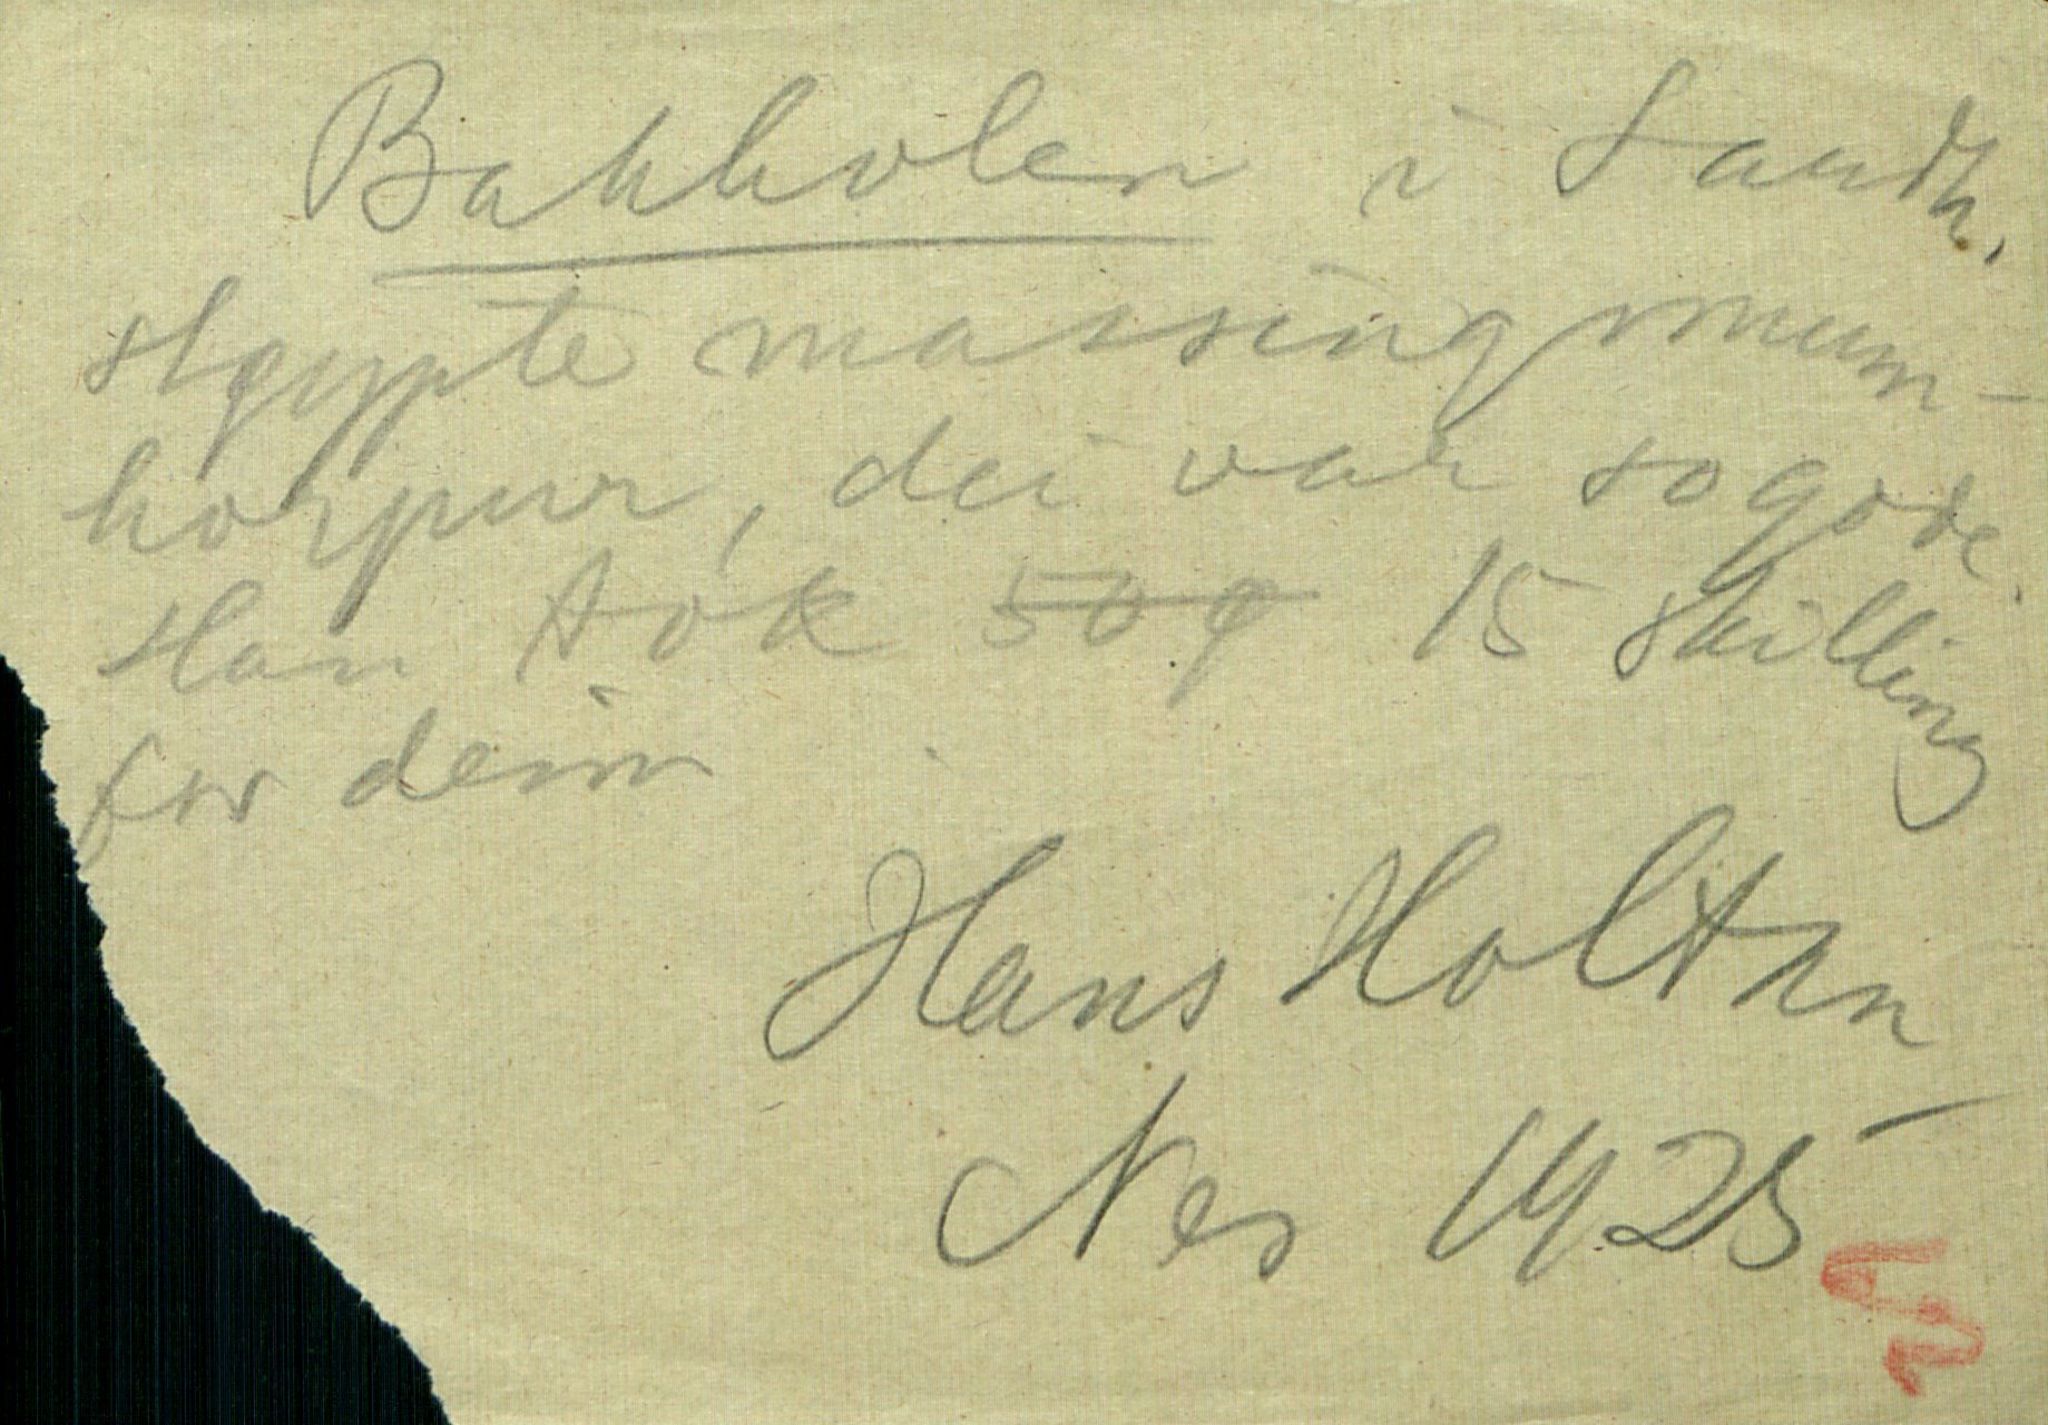 Bakkolen i Sandh.
støypte massingmunn-
horpur, dei var so gode.
Han tok 50 ø 15 skilling
for deim
Hans Holtan
Nes 1925